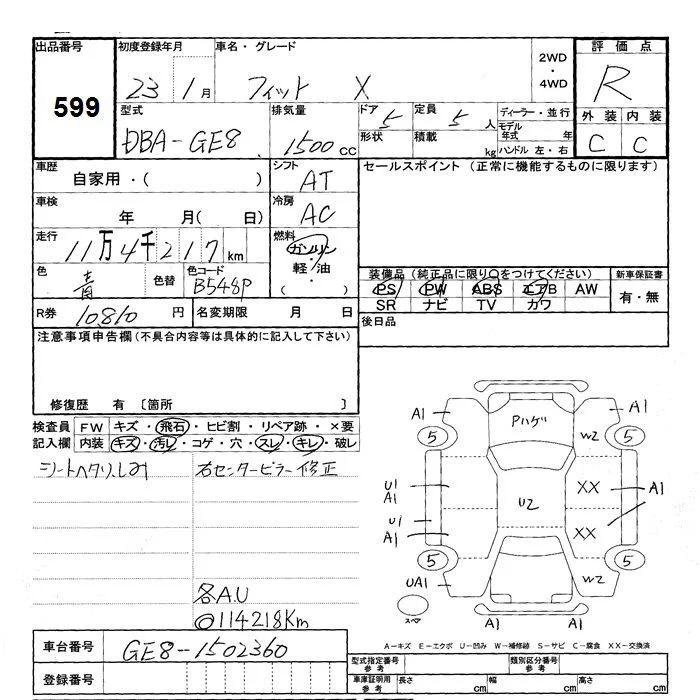 出品番号 初度登録年月 車名・グレード 2WD・4WD 評価点
599 23 1月 フィット X R
型式 排気量 ドア 5 定員 5人 ディーラー・並行 外装 内装
DBA-GE8 1500cc 形状 積載 kg モデル年式 年 ハンドル 左・右 C C
車歴 自家用・( ) シフト AT セールスポイント (正常に機能するものに限ります)
車検 年 月( 日) 冷房 AC
走行 11万4千217km 燃料 ガソリン・軽油・( )
色 青 色替 色コード B548P 装備品(純正品に限り○をつけてください) 新車保証書
PS PW ABS エアB AW 有・無
SR ナビ TV カワ
R券 10810円 名変期限 月 日 後日品
注意事項申告欄(不具合内容等は具体的に記入して下さい)
修復歴 有 〔箇所 〕
検査員記入欄 FW キズ・飛石・ヒビ割・リペア跡・×要
内装 キズ・汚レ・コゲ・穴・スレ・キレ・破レ
シートヘタリ、しみ 右センターピラー修正
各A.U
◎114218Km
A1 Pハゲ A1
5 W2 5
U1 A1 U2 XX A1
U1 A1 XX
5 5
UA1 W2
スペア A1 A1
A-キズ E-エクボ U-凹み W-補修跡 S-サビ C-腐食 XX-交換済
車台番号 GE8-1502360 型式指定番号 参考 類別区分番号 参考
登録番号 車庫証明用 参考 長さ cm 幅 cm 高さ cm